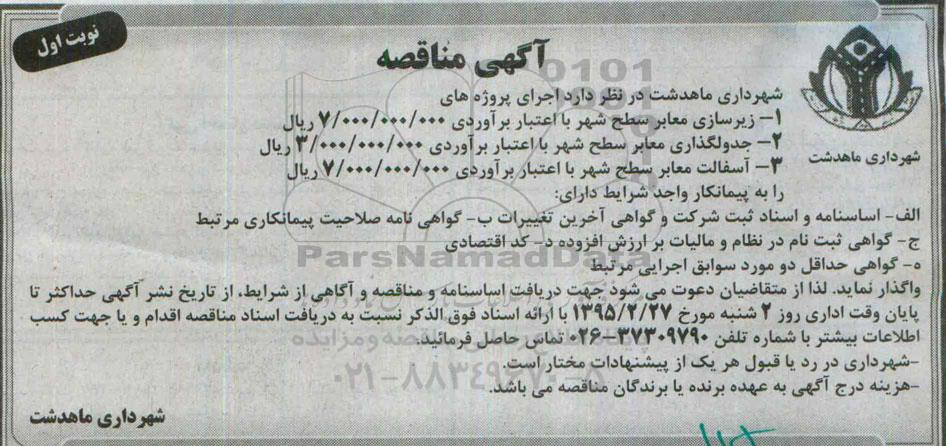 نوبت اول
آگهی مناقصه
شهرداری ماهدشت
شهرداری ماهدشت در نظر دارد اجرای پروژه های
۱- زیرسازی معابر سطح شهر با اعتبار برآوردی ۷/۰۰۰/۰۰۰/۰۰۰ ریال
۲- جدولگذاری معابر سطح شهر با اعتبار برآوردی ۳/۰۰۰/۰۰۰/۰۰۰ ریال
۳- آسفالت معابر سطح شهر با اعتبار برآوردی ۷/۰۰۰/۰۰۰/۰۰۰ ریال
را به پیمانکار واجد شرایط دارای:
الف- اساسنامه و اسناد ثبت شرکت و گواهی آخرین تغییرات ب- گواهی نامه صلاحیت پیمانکاری مرتبط
ج- گواهی ثبت نام در نظام و مالیات بر ارزش افزوده د- کد اقتصادی
ه- گواهی حداقل دو مورد سوابق اجرایی مرتبط
واگذار نماید. لذا از متقاضیان دعوت می شود جهت دریافت اساسنامه و مناقصه و آگاهی از شرایط، از تاریخ نشر آگهی حداکثر تا
پایان وقت اداری روز ۲ شنبه مورخ ۱۳۹۵/۲/۲۷ با ارائه اسناد فوق الذکر نسبت به دریافت اسناد مناقصه اقدام و یا جهت کسب
اطلاعات بیشتر با شماره تلفن ۳۷۳۰۹۷۹۰-۰۲۶ تماس حاصل فرمائید.
-شهرداری در رد یا قبول هر یک از پیشنهادات مختار است.
-هزینه درج آگهی به عهده برنده یا برندگان مناقصه می باشد.
شهرداری ماهدشت
ParsNamadData